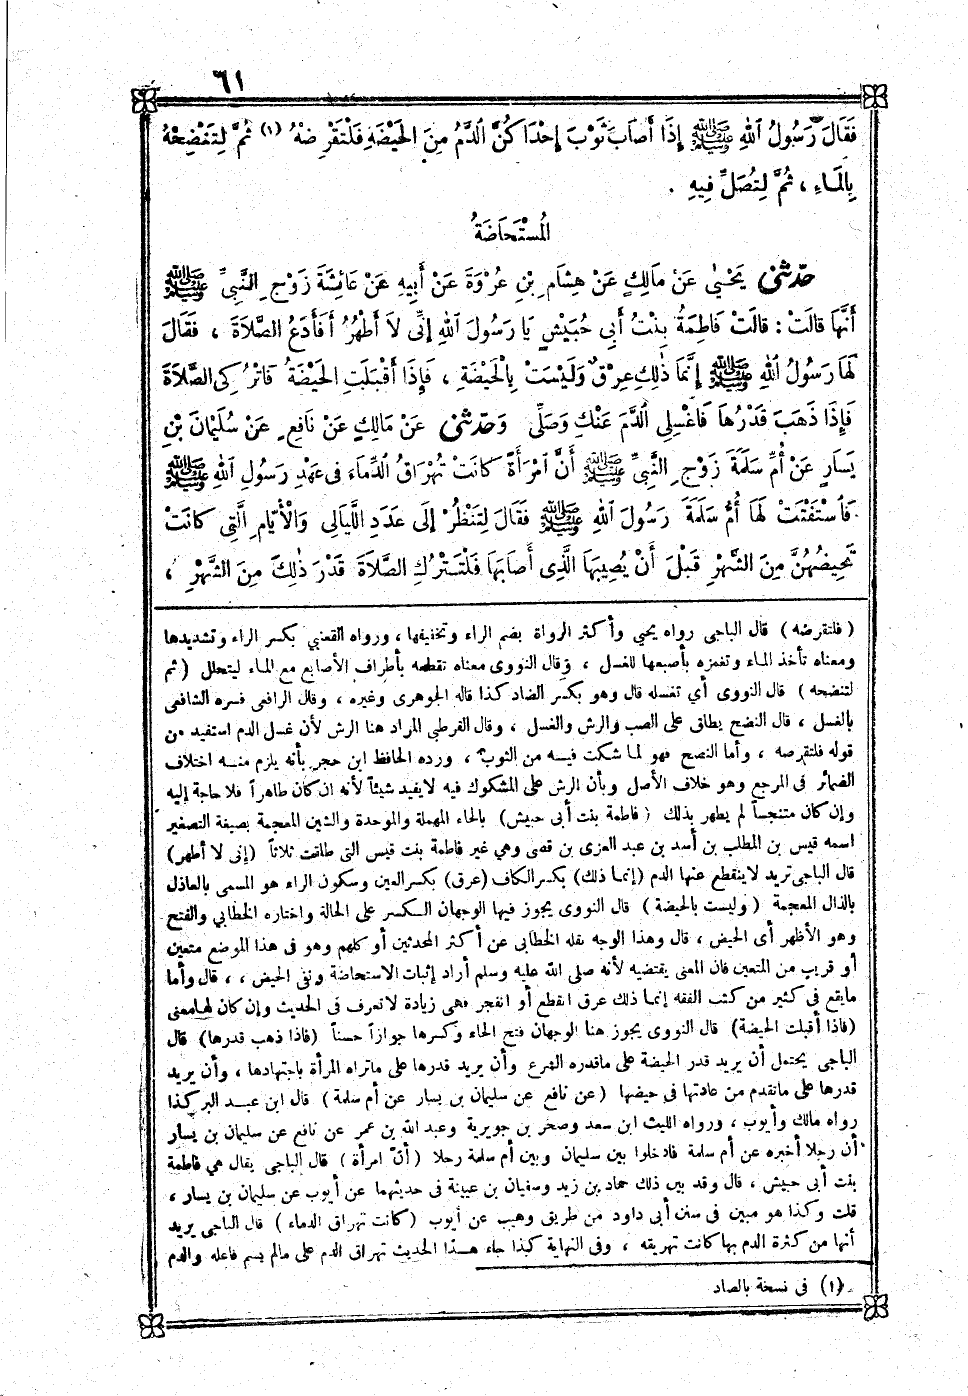 ٦١
فَقَالَ رَسُولُ اللهِ ﷺ إِذَا أَصَابَ ثَوْبَ إِحْدَاكُنَّ الدَّمُ مِنَ الحَيْضَةِ فَلْتَقْرِضْهُ (١) ثُمَّ لِتَنْضِحْهُ
بِالمَاءِ ، ثُمَّ لِتُصَلِّ فِيهِ .
المُسْتَحَاضَةُ
حَدّثَنى يَحْيٰ عَنْ مَالِكٍ عَنْ هِشَامِ بْنِ عُرْوَةَ عَنْ أَبِيهِ عَنْ عَائِشَةَ زَوْجِ النَّبِىِّ ﷺ
أَنَّهَا قَالَتْ : قَالَتْ فَاطِمَةُ بِنْتُ أَبِى حُبَيْشٍ يَا رَسُولَ اللهِ إِنِّى لاَ أَطْهُرُ أَفَأَدَعُ الصَّلاَةَ ، فَقَالَ
لَهَا رَسُولُ اللهِ ﷺ إِنَّمَا ذٰلِكِ عِرْقٌ وَلَيْسَتْ بِالْحَيْضَةِ ، فَإِذَا أَقْبَلَتِ الحَيْضَةُ فَاتْرُكِى الصَّلاَةَ
فَإِذَا ذَهَبَ قَدْرُهَا فَاغْسِلِى الدَّمَ عَنْكِ وَصَلِّى وَحَدّثَنى عَنْ مَالِكٍ عَنْ نَافِعٍ عَنْ سُلَيْمَانَ بْنِ
يَسَارٍ عَنْ أُمِّ سَلَمَةَ زَوْجِ النَّبِىِّ ﷺ أَنَّ امْرَأَةً كَانَتْ تُهْرَاقُ الدِّمَاءَ فِى عَهْدِ رَسُولِ اللهِ ﷺ
فَاسْتَفْتَتْ لَهَا أُمُّ سَلَمَةَ رَسُولَ اللهِ ﷺ فَقَالَ لِتَنْظُرْ إِلَى عَدَدِ اللَّيَالِى وَالْأَيَّامِ الَّتِى كَانَتْ
تَحِيضُهُنَّ مِنَ الشَّهْرِ قَبْلَ أَنْ يُصِيبَهَا الَّذِى أَصَابَهَا فَلْتَتْرُكِ الصَّلاَةَ قَدْرَ ذٰلِكَ مِنَ الشَّهْرِ ،
( فلتقرضه ) قال الباجى رواه يحيى وأكثر الرواة بضم الراء وتخفيفها ، ورواه القعنبى بكسر الراء وتشديدها
ومعناه تأخذ الماء وتغمزه بأصبعها للغسل ، وقال النووى معناه تقطعه بأطراف الأصابع مع الماء ليتحلل ( ثم
لتنضحه ) قال النووى أي تغسله قال وهو بكسر الضاد كذا قاله الجوهرى وغيره ، وقال الرافعى فسره الشافعى
بالغسل ، قال النضح يطلق على الصب والرش والغسل ، وقال القرطبى المراد هنا الرش لأن غسل الدم استفيد من
قوله فلتقرصه ، وأما النضح فهو لما شكت فيه من الثوب ، ورده الحافظ ابن حجر بأنه يلزم منه اختلاف
الضمائر فى المرجع وهو خلاف الأصل وبأن الرش على المشكوك فيه لايفيد شيئاً لأنه ان كان طاهراً فلا حاجة إليه
وإن كان متنجساً لم يطهر بذلك ( فاطمة بنت أبى حبيش ) بالحاء المهملة والموحدة والشين المعجمة بصيغة التصغير
اسمه قيس بن المطلب بن أسد بن عبد العزى بن قصى وهي غير فاطمة بنت قيس التى طلقت ثلاثاً (إنى لا أطهر)
قال الباجى تريد لاينقطع عنها الدم (إنما ذلك) بكسر الكاف (عرق) بكسر العين وسكون الراء هو المسمى بالعاذل
بالذال المعجمة ( وليست بالحيضة ) قال النووى يجوز فيها الوجهان الكسر على الحالة واختاره الخطابي والفتح
وهو الأظهر أى الحيض ، قال وهذا الوجه نقله الخطابى عن أكثر المحدثين أو كلهم وهو فى هذا الموضع متعين
أو قريب من المتعين فان المعنى يقتضيه لأنه صلى الله عليه وسلم أراد إثبات الاستحاضة ونفى الحيض ، ، قال وأما
مايقع فى كثير من كتب الفقه إنما ذلك عرق انقطع أو انفجر فهى زيادة لاتعرف فى الحديث وإن كان لها معنى
(فاذا أقبلت الحيضة) قال النووى يجوز هنا الوجهان فتح الحاء وكسرها جوازاً حسناً (فاذا ذهب قدرها) قال
الباجى يحتمل أن يريد قدر الحيضة على ماقدره الشرع وأن يريد قدرها على ماتراه المرأة باجتهادها ، وأن يريد
قدرها على ماتقدم من عادتها فى حيضها ( عن نافع عن سليمان بن يسار عن أم سلمة ) قال ابن عبد البر كذا
رواه مالك وأيوب ، ورواه الليث ابن سعد وصخر بن جويرية وعبد الله بن عمر عن نافع عن سليمان بن يسار
أن رجلا أخبره عن أم سلمة فادخلوا بين سليمان وبين أم سلمة رجلا ( أن امرأة ) قال الباجى يقال هى فاطمة
بنت أبى حبيش ، قال وقد بين ذلك حماد بن زيد وسفيان بن عيينة فى حديثهما عن أيوب عن سليمان بن يسار ،
قلت وكذا هو مبين فى سنن أبى داود من طريق وهيب عن أيوب ( كانت تهراق الدماء ) قال الباجى يريد
أنها من كثرة الدم بها كانت تهريقه ، وفى النهاية كذا جاء هذا الحديث تهراق الدم على مالم يسم فاعله والدم
(١) فى نسخة بالصاد